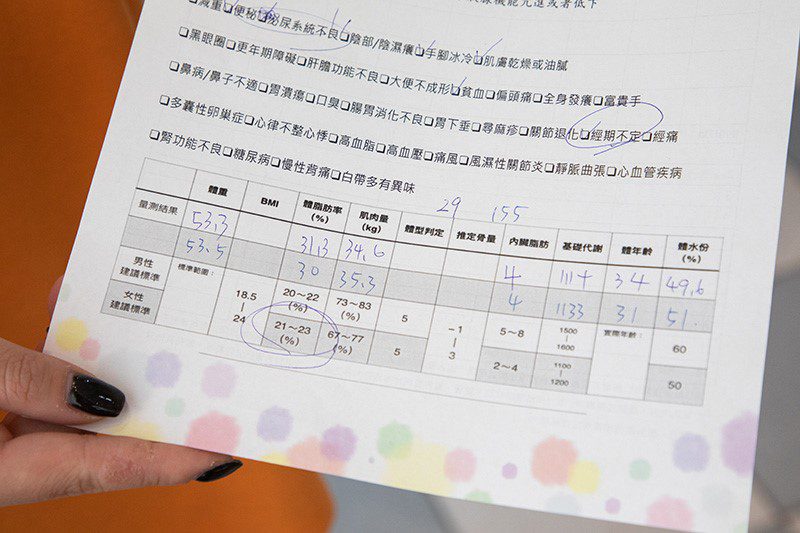 機能亢進或者低下
減重❑便秘❑泌尿系統不良❑陰部/陰濕癢❑手腳冰冷❑肌膚乾燥或油膩
❑黑眼圈❑更年期障礙❑肝膽功能不良❑大便不成形❑貧血❑偏頭痛❑全身發癢❑富貴手
❑鼻病/鼻子不適❑胃潰瘍❑口臭❑腸胃消化不良❑胃下垂❑尋麻疹❑關節退化❑經期不定❑經痛
❑多囊性卵巢症❑心律不整心悸❑高血脂❑高血壓❑痛風❑風濕性關節炎❑靜脈曲張❑心血管疾病
❑腎功能不良❑糖尿病❑慢性背痛❑白帶多有異味
29 155
體重 BMI 體脂肪率(%) 肌肉量(kg) 體型判定 推定骨量 內臟脂肪 基礎代謝 體年齡 體水份(%)
量測結果 53.3 31.3 34.6 4 34 49.6
53.5 30 35.3 4 1133 31 51.
男性建議標準 標準範圍： 18.5|24 20～22(%) 73～83(%) 5 -1|3 5~8 1500|1600 實際年齡： 60
女性建議標準 21～23(%) 67～77(%) 5 2~4 1100|1200 50